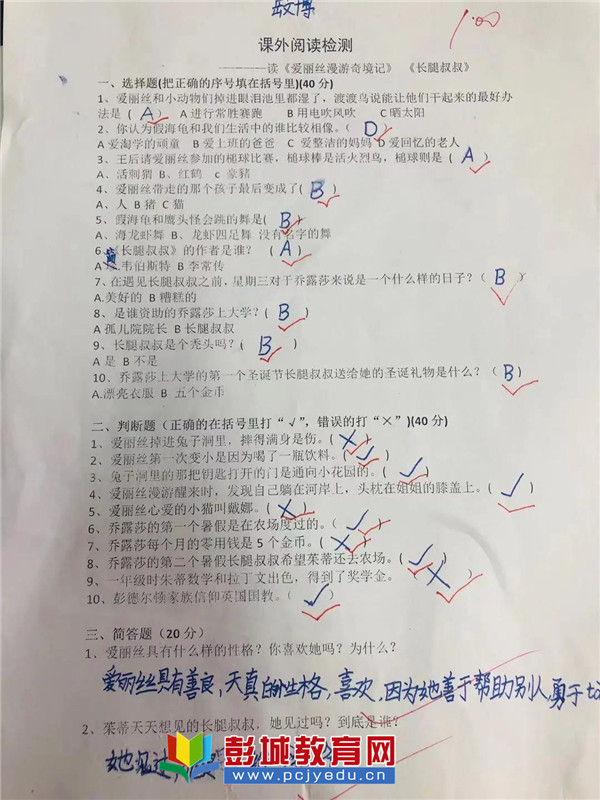 100
课外阅读检测
————读《爱丽丝漫游奇境记》 《长腿叔叔》
一、选择题(把正确的序号填在括号里)(40分)
1、爱丽丝和小动物们掉进眼泪池里都湿了，渡渡鸟说能让他们干起来的最好办
法是（ A ） A 进行常胜赛跑 B 用电吹风吹 C 晒太阳
2、你认为假海龟和我们生活中的谁比较相像。（ D ）
A 爱淘学的顽童 B 爱上班的爸爸 C 爱整洁的妈妈 D 爱回忆的老人
3、王后请爱丽丝参加的槌球比赛，槌球棒是活火烈鸟，槌球则是（ A ）
A、活刺猬 B、红鹤 c 豪豬
4、爱丽丝带走的那个孩子最后变成了（ B ）
A、人 B 猪 C 猫
5、假海龟和鹰头怪会跳的舞是( B )
A、海龙虾舞 B、龙虾四足舞 没有名字的舞
6、《长腿叔叔》的作者是谁？（ A ）
A 韦伯斯特 B 李常传
7、在遇见长腿叔叔之前，星期三对于乔露莎来说是一个什么样的日子？（ B ）
A.美好的 B 糟糕的
8、是谁资助的乔露莎上大学？( B )
A 孤儿院院长 B 长腿叔叔
9、长腿叔叔是个秃头吗？( B )
A 是 B 不是
10、乔露莎上大学的第一个圣诞节长腿叔叔送给她的圣诞礼物是什么？（ B ）
A.漂亮衣服 B 五个金币
二、判断题（正确的在括号里打“√”，错误的打“×”)(40分)
1、爱丽丝掉进兔子洞里，摔得满身是伤。（ × ）
2、爱丽丝第一次变小是因为喝了一瓶饮料。（ √ ）
3、兔子洞里的那把钥匙打开的门是通向小花园的。（ √ ）
4、爱丽丝漫游醒来时，发现自己躺在河岸上，头枕在姐姐的膝盖上。（ √ ）
5、爱丽丝心爱的小猫叫戴娜。（ × ）
6、乔露莎的第一个暑假是在农场度过的。（ √ ）
7、乔露莎每个月的零用钱是5个金币。（ × ）
8、乔露莎的第二个暑假长腿叔叔希望茱蒂还去农场。（ √ ）
9、一年级时朱蒂数学和拉丁文出色，得到了奖学金。（ × ）
10、彭德尔顿家族信仰英国国教。（ √ ）
三、简答题（20分）
1、爱丽丝具有什么样的性格？你喜欢她吗？为什么？
爱丽丝具有善良，天真的性格，喜欢，因为她善于帮助别人，勇于
2、茱蒂天天想见的长腿叔叔，她见过吗？到底是谁？
她见过，
彭城教育网
www.pcjyedu.cn